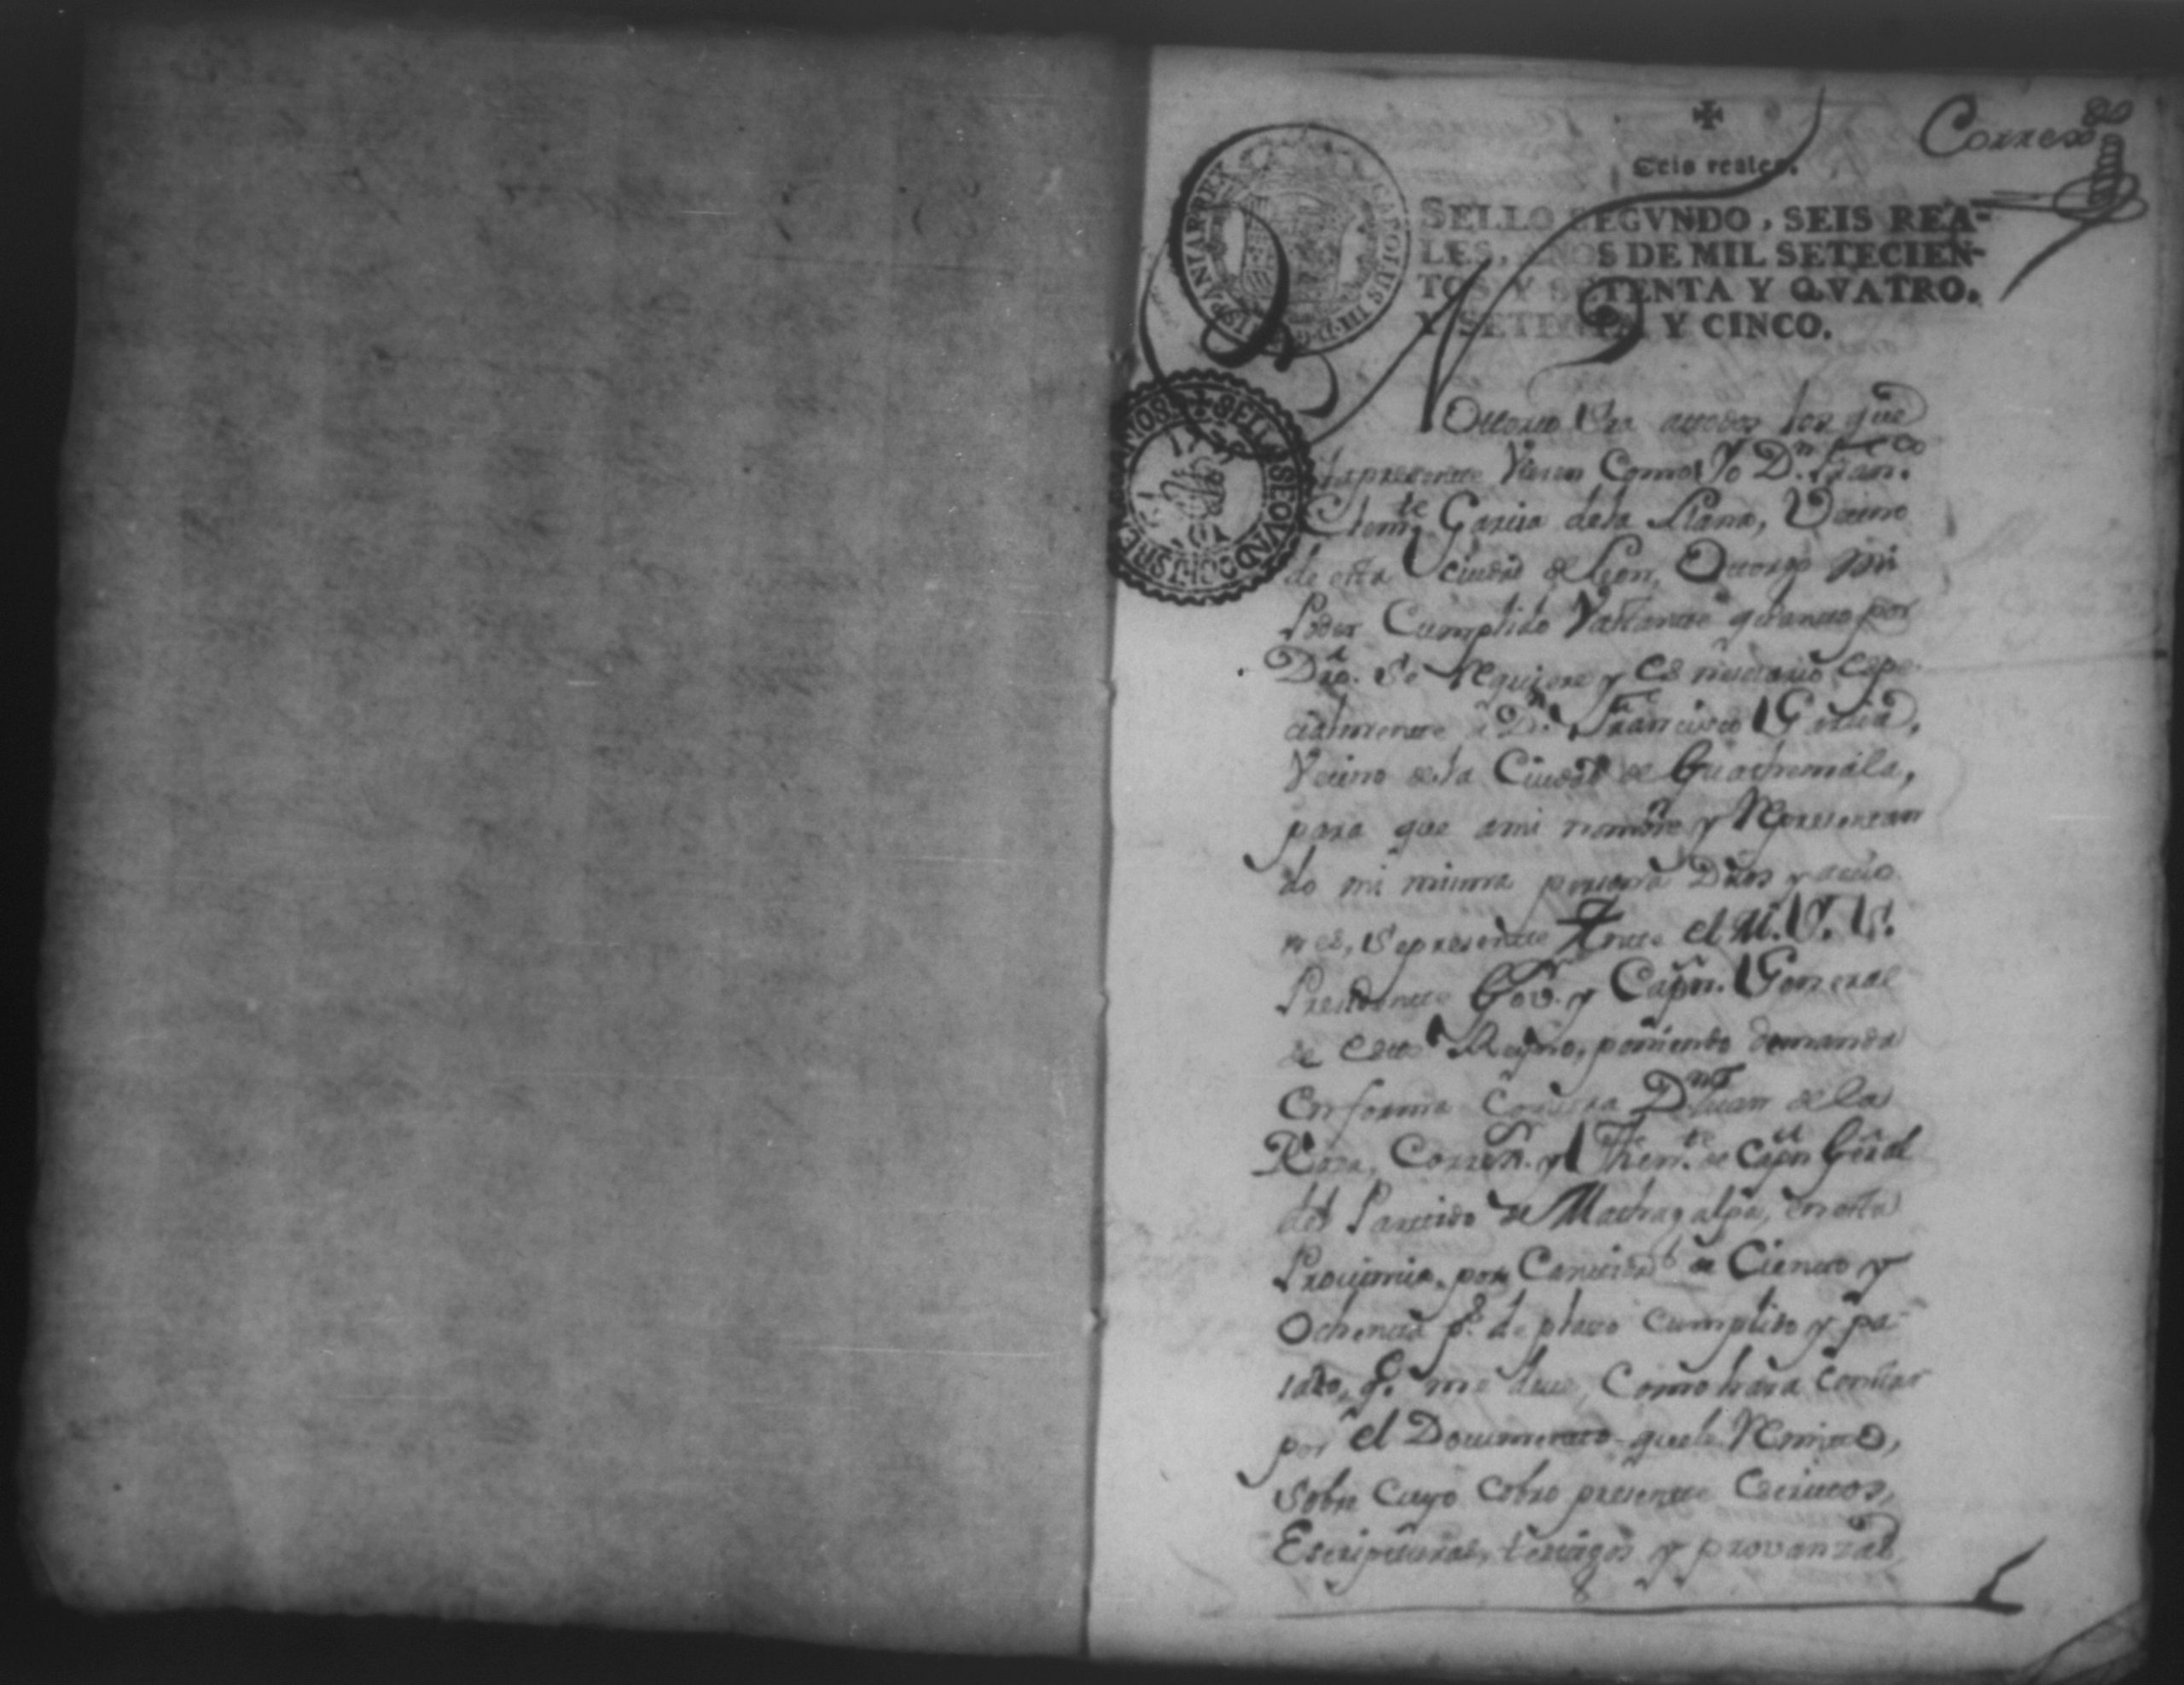 Correxdo
Seis reales.
SELLO SEGVNDO, SEIS REA-
LES, AÑOS DE MIL SETECIEN-
TOS Y SETENTA Y QVATRO.
Y SETENTA Y CINCO.
CAROLUS III D.G. HISPANIAR REX
SELLO SEGVNDO SEIS REALES
Nottorio Sea attodos los que
la presente Vieren Como Yo Dn. Fran.co
Clemte. Garcia dela Llana, Vecino
de esta Ciudad de Leon, Ottorgo mi
Poder Cumplido Vastante quanto por
Dro. Se Requiere y es nesesario espe-
cialmente â Dn. Francisco Garcia,
Vecino dela Ciudad de Guathemala,
para que ami nombre y Representan
do mi misma persona Dros y accio
nes, Sepresente Ante el M. Y. S.
Presidente Gov. y Capn. General
de este Reyno, poniendo demanda
en forma Contra Dn. Juan de la
Raza, Corregr. y Thente. de Capn Genal
del Partido de Mathagalpa, en esta
Provincia, por Cantidad de Ciento y
Ochenta ps. de plazo Cumplido y pa-
sado, qe. me deve, Como hara Constar
por el Documento quele Remito,
Sobre Cuyo Cobro presente Escritos,
Escripturas, testigos y provanzas